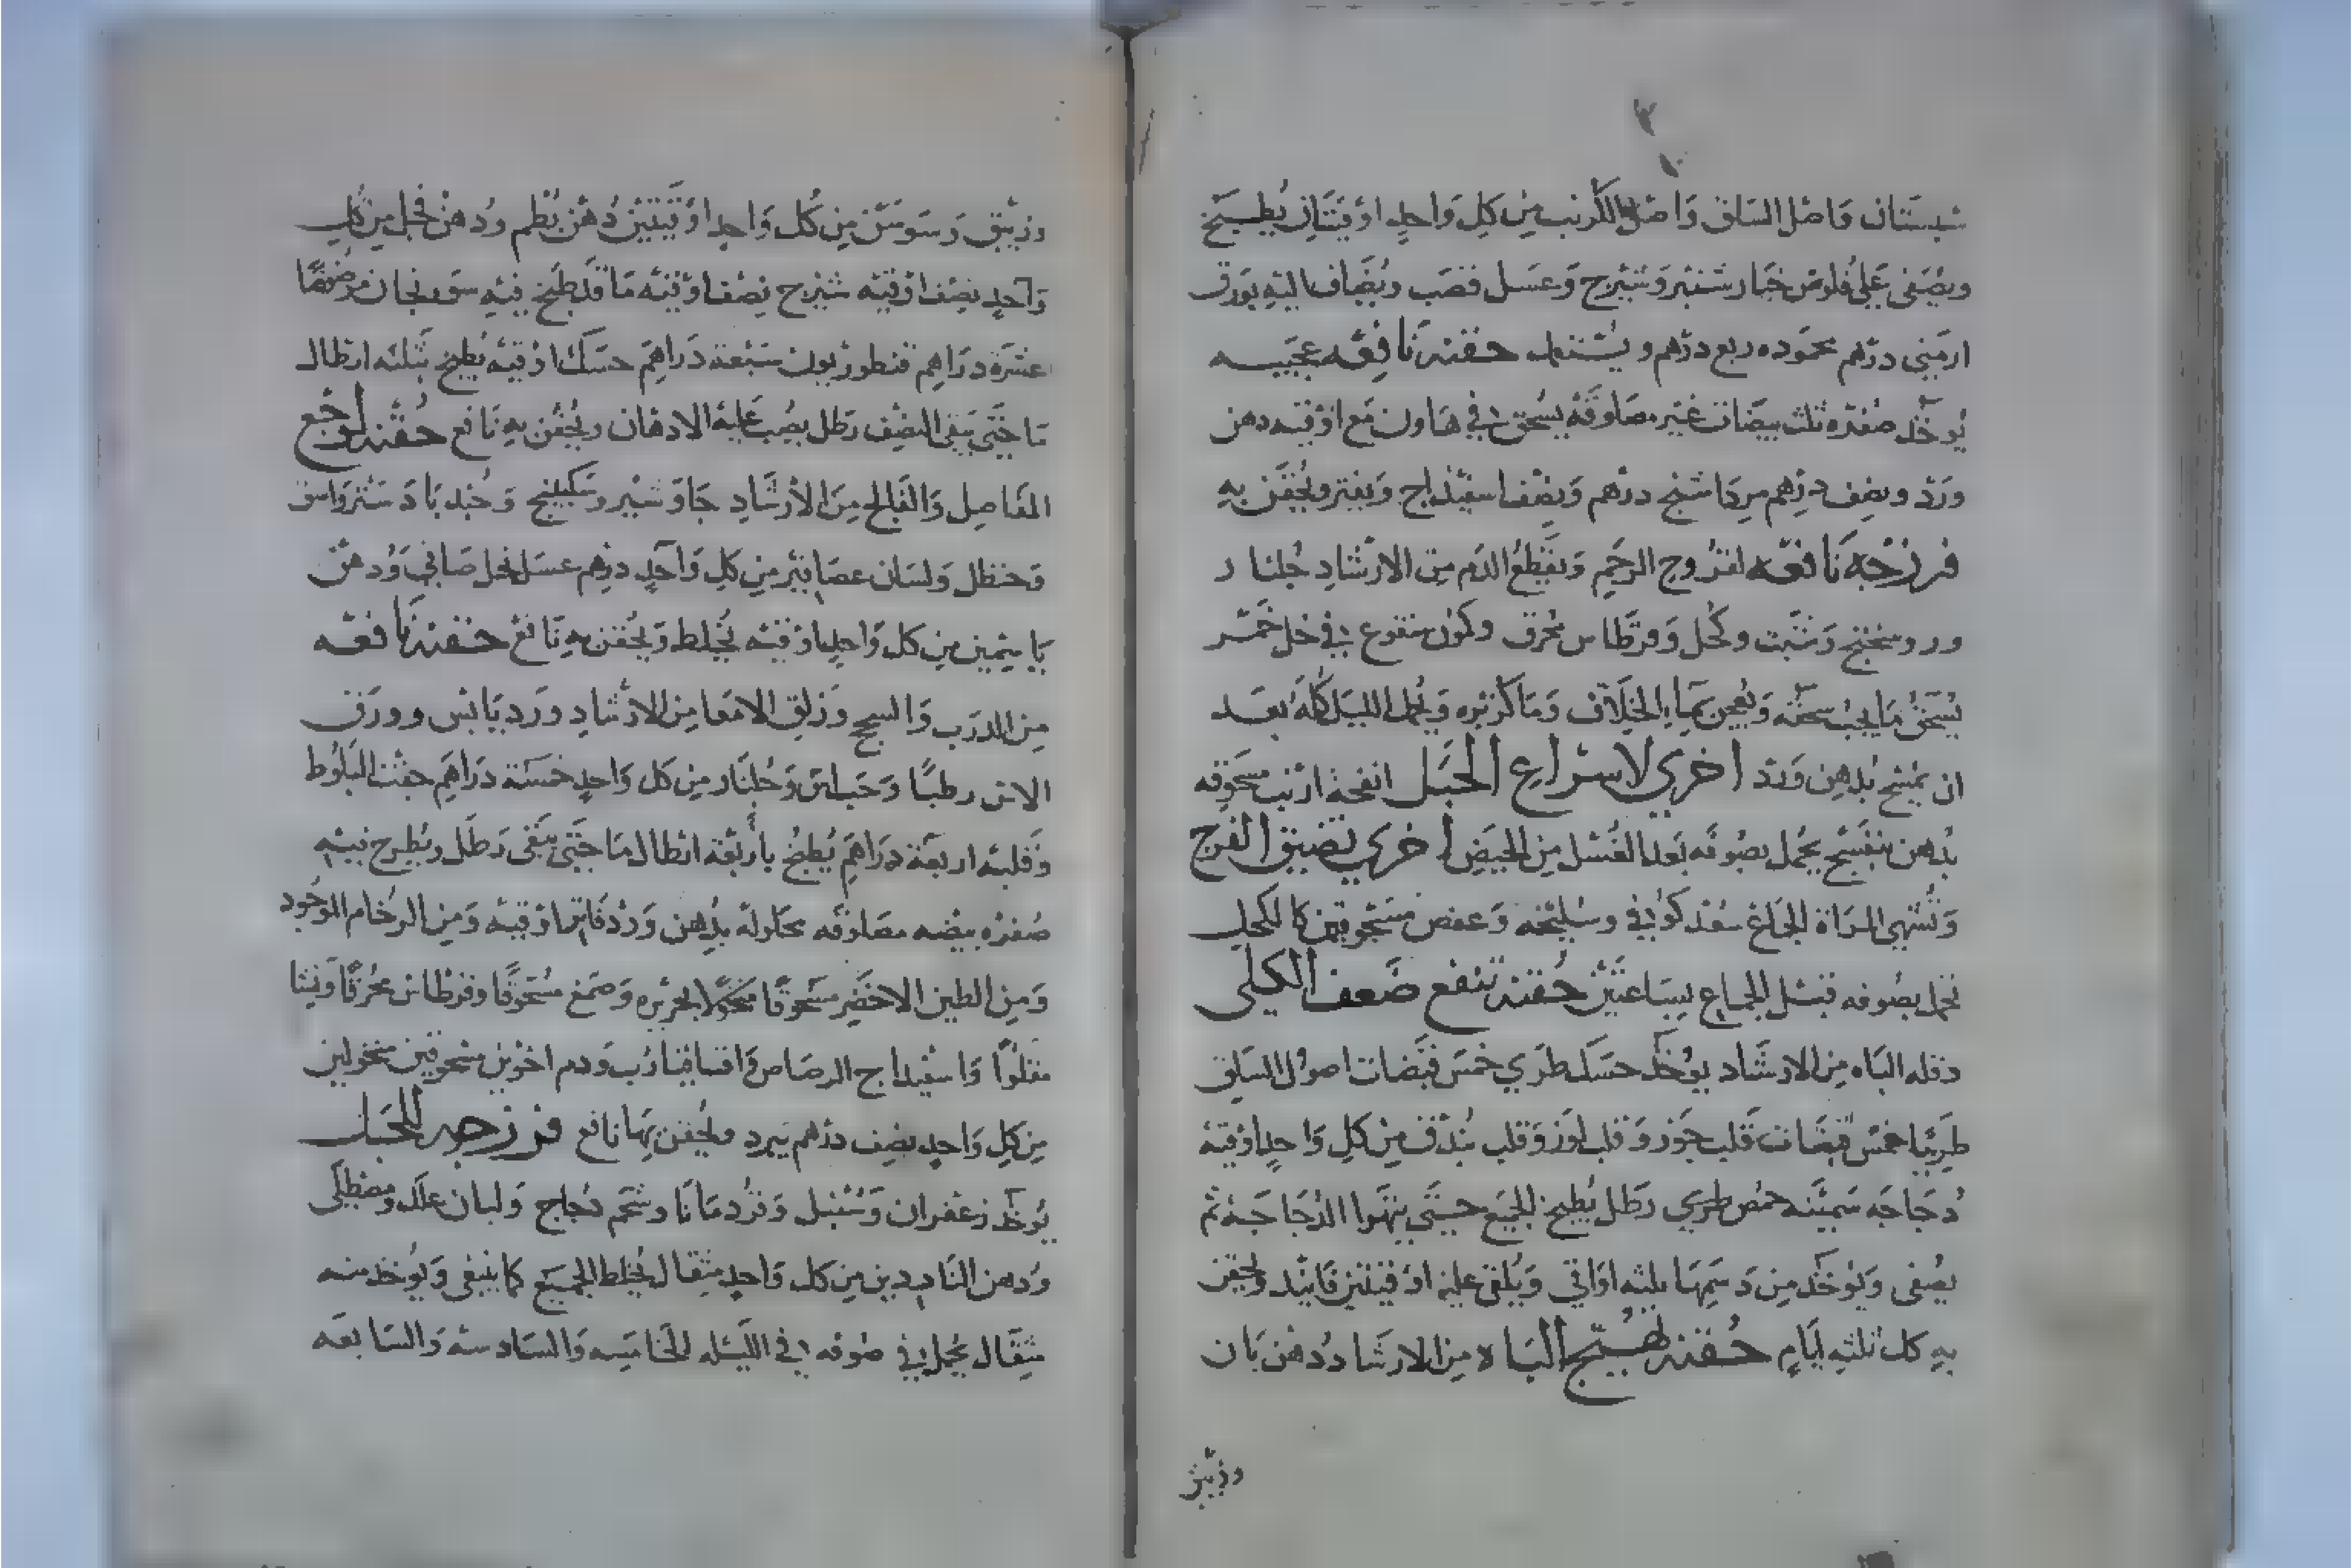 شبستان واصل السلق واصل الكرنب من كل واحد اوقيتان يطبخ
ويصفى على فلوس خيار شنبر وشيرج وعسل قصب ويضاف اليه بورق
ارمنى درهم محموده ربع درهم ويستعمل حقنه نافعه عجيبه
يوخذ صفره ثلث بيضات غير مصلوقه يسحق في هاون مع اوقيه دهن
ورد ونصف درهم مرداسنج درهم ونصف اسفيذاج ويفتر ويحقن به
فرزجه نافعه لقروح الرحم وتقطع الدم من الارشاد جلنار
وروسختج وشبت وكحل وقرطاس محرق وكمون منقوع في خل خمر
يسحق ما يجب سحقه ويعجن بماء الخلاف وما كزبره ويحمل الليل كله بعد
ان يمسح بدهن ورد اخري لاسراع الحبل انفحة ارنب مسحوقه
بدهن بنفسج يحمل بصوفه بعد الغسل من الحيض اخري تضيق الفرج
وتشهي المراة الجماع سعد كوفي وسليخه وعفص مسحوقين كالكحل
تحمل بصوفه قبل الجماع بساعتين حقنه تنفع ضعف الكلى
وقله الباه من الارشاد يوخذ حسك طري خمس قبضات اصول السلق
طريا خمس قبضات قلب جوز وقلب لوز وقلب بندق من كل واحد اوقية
دجاجه سمينه حمص طري رطل يطبخ الجميع حتى يتهرا الدجاجه ثم
يصفى ويوخذ من دسمها ثلثه اواقي ويلقى عليه اوقيتين فانيد ويحقن
به كل ثلثه ايام حقنه تهيج الباه من الارشاد دهن بان
وزنبق
وزنبق وسوسن من كل واحد اوقيتين دهن بطم ودهن فجل من كل
واحد نصف اوقيه شيرج نصف اوقيه ما قد طبخ فيه سورنجان مرضوضا
عشرة دراهم قنطوريون سبعة دراهم حسك اوقيه يطبخ بثلثه ارطال
ما حتى يبقى النصف رطل يصب عليه الادهان ويحقن به نافع حقنه لوجع
المفاصل والفالج من الارشاد جاوشير وسكبينج وجندبادستر واشق
وحنظل ولسان عصافير من كل واحد درهم عسل نحل صافي ودهن
ياسمين من كل واحد اوقيه يخلط ويحقن به نافع حقنه نافعه
من الذرب والسحج وزلق الامعا من الارشاد ورد يابس وورق
الاس رطبا وحب اس وجلنار من كل واحد خمسة دراهم جفت البلوط
وقلبه اربعة دراهم يطبخ باربعة ارطال ما حتى يبقى رطل ويطرح فيه
صفره بيضه مصلوقه محلوله بدهن ورد فاتر اوقيه ومن الرخام الموجود
ومن الطين الاخضر مسحوقا منخولا بحريره وصمغ مسحوقا وقرطاس محرقا ونشا
مقلوا واسفيداج الرصاص واقاقيا ورب ودم اخوين مسحوقين منخولين
من كل واحد نصف درهم يبرد ويحقن بها نافع فرزجه للحبل
يوخذ زعفران وسنبل وقردمانا وشحم دجاج ولبان علك ومصطكى
ودهن الناردين من كل واحد مثقال يخلط الجميع كما ينبغى ويوخذ منه
مثقال يحمل في صوفه في الليله الخامسه والسادسه والسابعه